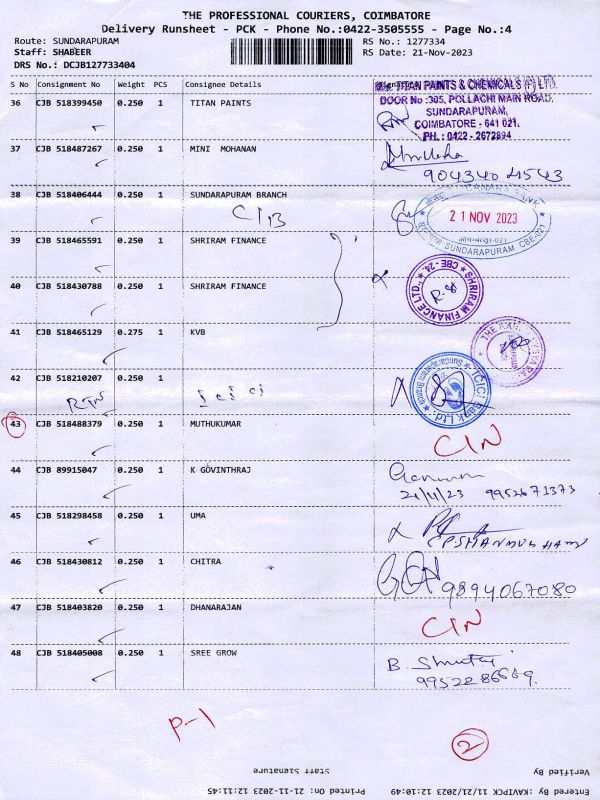 THE PROFESSIONAL COURIERS, COIMBATORE
Delivery Runsheet - PCK - Phone No.:0422-3505555 - Page No.:4
Route: SUNDARAPURAM RS No.: 1277334
Staff: SHABEER RS Date: 21-Nov-2023
DRS No.: DCJB127733404
S No Consignment No Weight PCS Consignee Details
36 CJB 518399450 0.250 1 TITAN PAINTS
TITAN PAINTS & CHEMICALS (P) LTD.
DOOR No :305, POLLACHI MAIN ROAD,
SUNDARAPURAM,
COIMBATORE - 641 021.
PH. : 0422 - 2672894
37 CJB 518487267 0.250 1 MINI MOHANAN
9043404543
38 CJB 518406444 0.250 1 SUNDARAPURAM BRANCH
CIB
21 NOV 2023
SUNDARAPURAM CBE-021
39 CJB 518465591 0.250 1 SHRIRAM FINANCE
40 CJB 518430788 0.250 1 SHRIRAM FINANCE
SHRIRAM FINANCE LTD., CBE - 24
41 CJB 518465129 0.275 1 KVB
42 CJB 518210207 0.250 1
RTN
icici
ICICI Bank Ltd. Sundarapuram Branch
43 CJB 518488379 0.250 1 MUTHUKUMAR
CIN
44 CJB 89915047 0.250 1 K GOVINTHRAJ
21/11/23 9952671373
45 CJB 518298458 0.250 1 UMA
46 CJB 518430812 0.250 1 CHITRA
9894067080
47 CJB 518403820 0.250 1 DHANARAJAN
CIN
48 CJB 518405008 0.250 1 SREE GROW
P-1
2
Verified By Staff Signature
:KAVIPCK 11/21/2023 12:10:49 Printed On: 21-11-2023 12:11:45